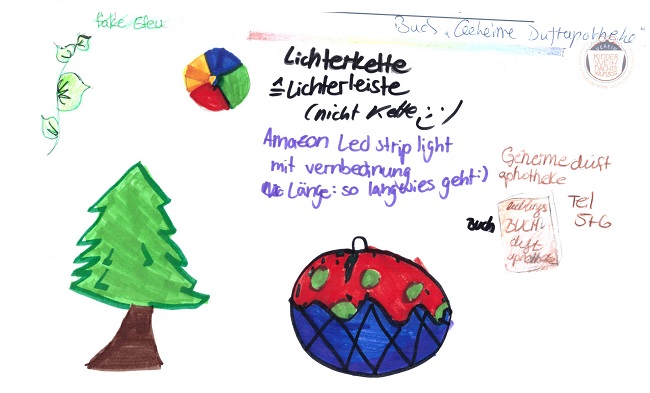 fake Efeu
Buch „Geheime Duftapotheke"
Lichterkette
≙Lichterleiste
(nicht Kette :-)
Amazon Led strip light
mit vernbednung
Länge: so lang wies geht:)
Geheime duft
aphotheke
Tel
5+6
Buch
BUCH
duft
aphotheke
VEREIN